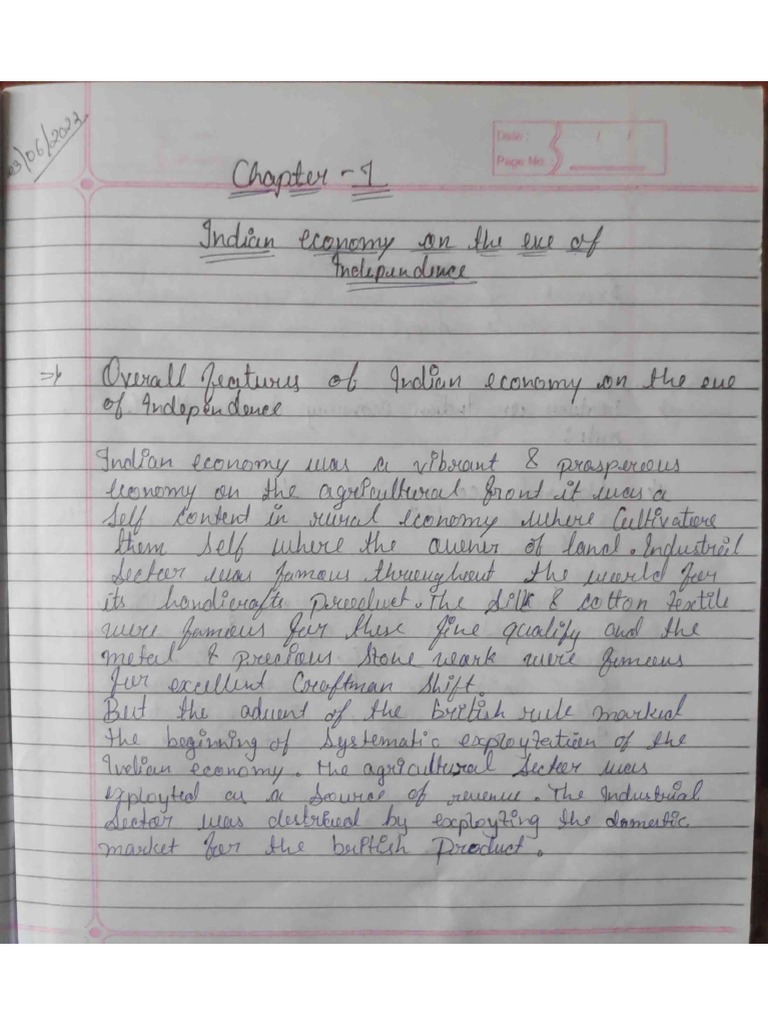 03/06/2023
Date : / /
Page No :
Chapter - 1
Indian economy on the eve of
Independence
=> Overall features of Indian economy on the eve
of Independence
Indian economy was a vibrant & prosperous
economy on the agricultural front it was a
self content in rural economy where Cultivators
them self where the owener of land. Industrial
Sector was famous throughout the world for
its handicrafts product. The silk & cotton textile
were famous for these fine quality and the
metal & precious stone work were famous
for excellent Craftman shift.
But the advent of the british rule marked
the beginning of systematic exploytation of the
Indian economy. The agricultural sector was
exployted as a source of revenue. The Industrial
sector was destried by exployting the domestic
market for the british Product.